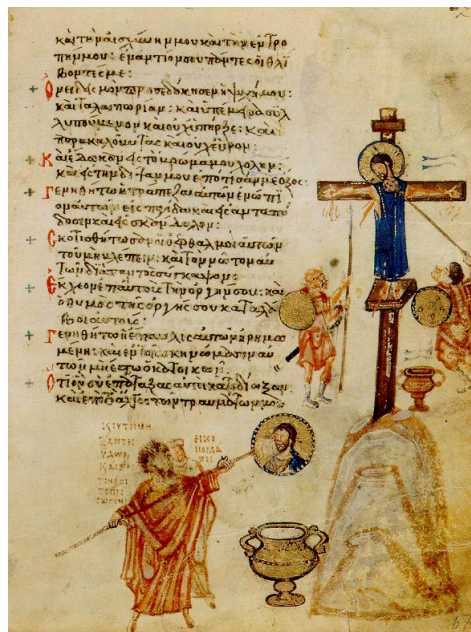 καὶ τὴν αἰσχύνην μου καὶ τὴν ἐντρο
πήν μου: ἐναντίον σου πάντες οἱ θλί
βοντές με:
Ὀνειδισμὸν προσεδόκησεν ἡ ψυχή μου:
καὶ ταλαιπωρίαν: καὶ ὑπέμεινα συλ
λυπούμενον καὶ οὐχ ὑπῆρξε: καὶ
παρακαλοῦντας καὶ οὐχ εὗρον:
Καὶ ἔδωκαν εἰς τὸ βρῶμά μου χολήν:
καὶ εἰς τὴν δίψαν μου ἐπότισάν με ὄξος:
Γενηθήτω ἡ τράπεζα αὐτῶν ἐνώπι
ον αὐτῶν εἰς παγίδα καὶ εἰς ἀνταπό
δοσιν καὶ εἰς σκάνδαλον:
Σκοτισθήτωσαν οἱ ὀφθαλμοὶ αὐτῶν
τοῦ μὴ βλέπειν: καὶ τὸν νῶτον αὐ
τῶν διὰ παντὸς σύγκαμψον:
Ἔκχεον ἐπ' αὐτοὺς τὴν ὀργήν σου: καὶ
ὁ θυμὸς τῆς ὀργῆς σου καταλά
βοι αὐτούς:
Γενηθήτω ἡ ἔπαυλις αὐτῶν ἠρημω
μένη: καὶ ἐν τοῖς σκηνώμασιν αὐ
τῶν μὴ ἔστω ὁ κατοικῶν:
Ὅτι ὃν σὺ ἐπάταξας αὐτοὶ κατεδίωξαν
καὶ ἐπὶ τὸ ἄλγος τῶν τραυμάτων μου
ΕΙΚΟ
ΝΟΜΑ
ΧΟΙ